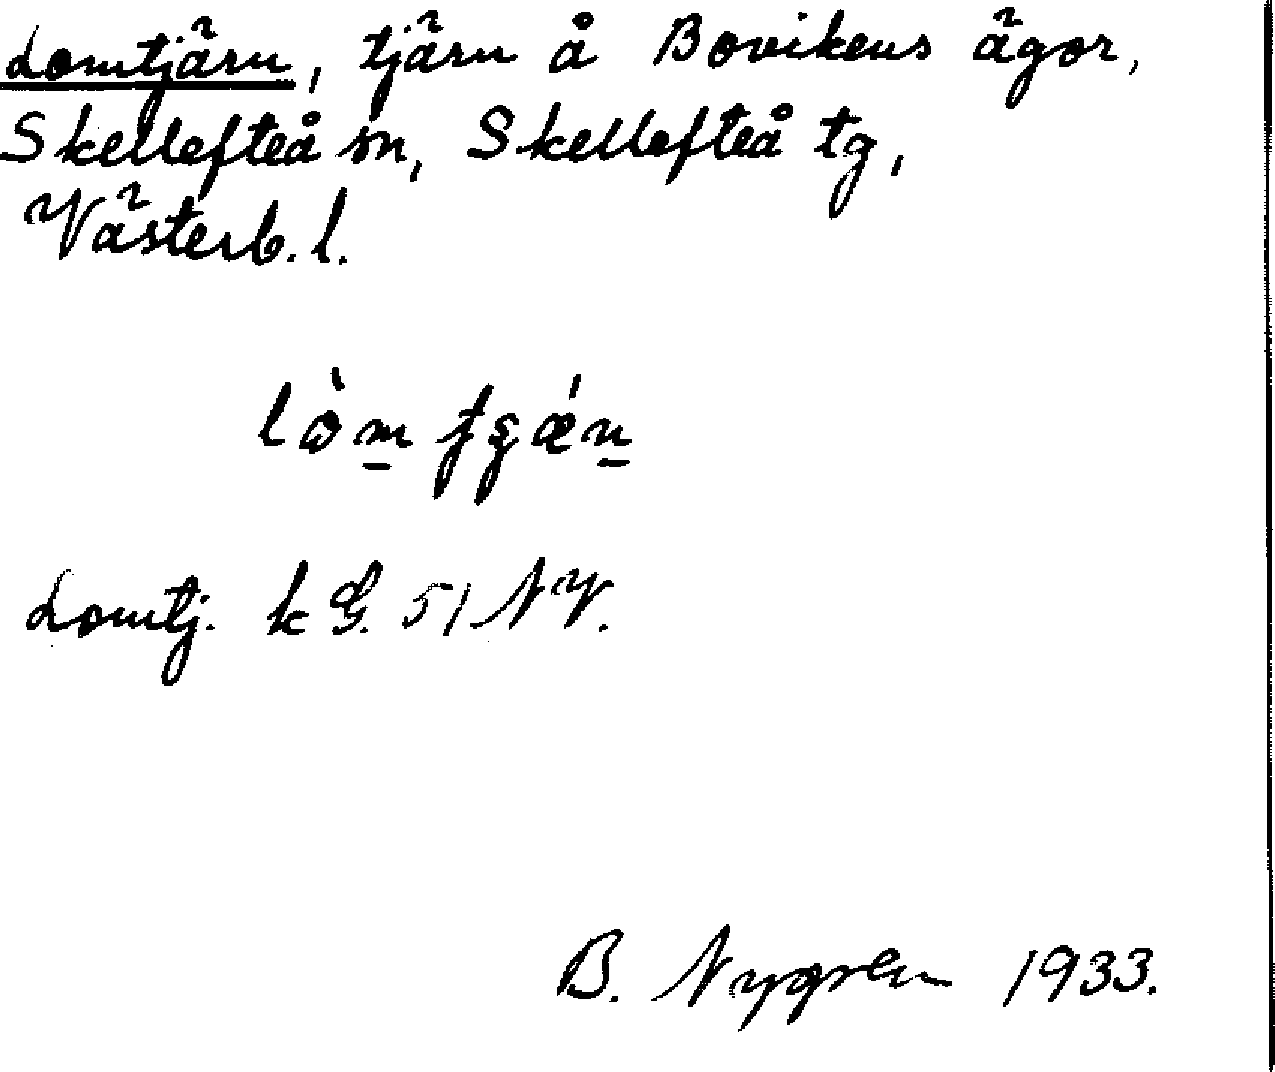 Lomtjärn, tjärn å Bovikens ägor,
Skellefteå sn, Skellefteå tg,
Västerb. l.
Lomtj. k G. 51 NV.
B. Nygren 1933.